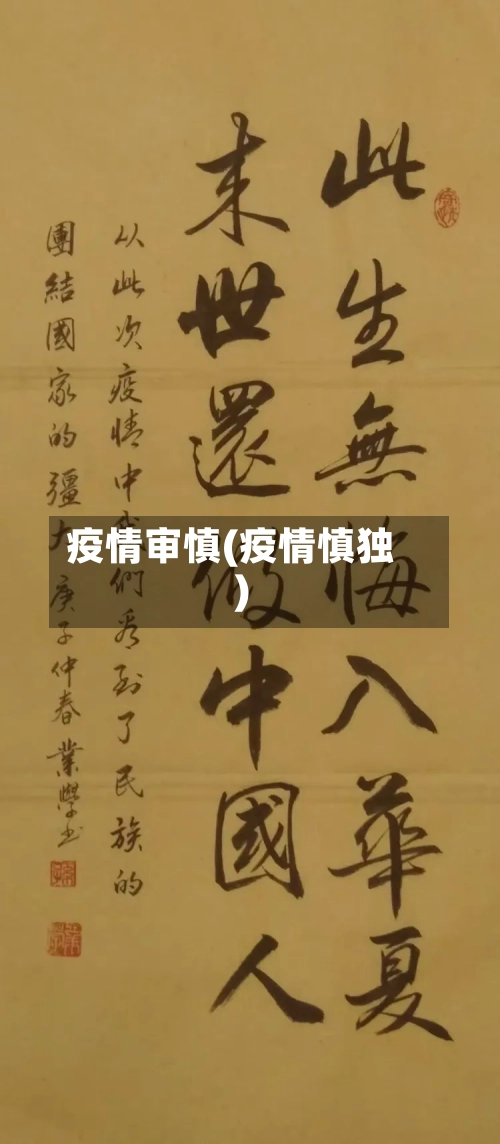 此生無悔入華夏
来世還做中國人
以此次疫情中我們看到了民族的
團結國家的彊大 庚子仲春業學书
疫情审慎(疫情慎独
)